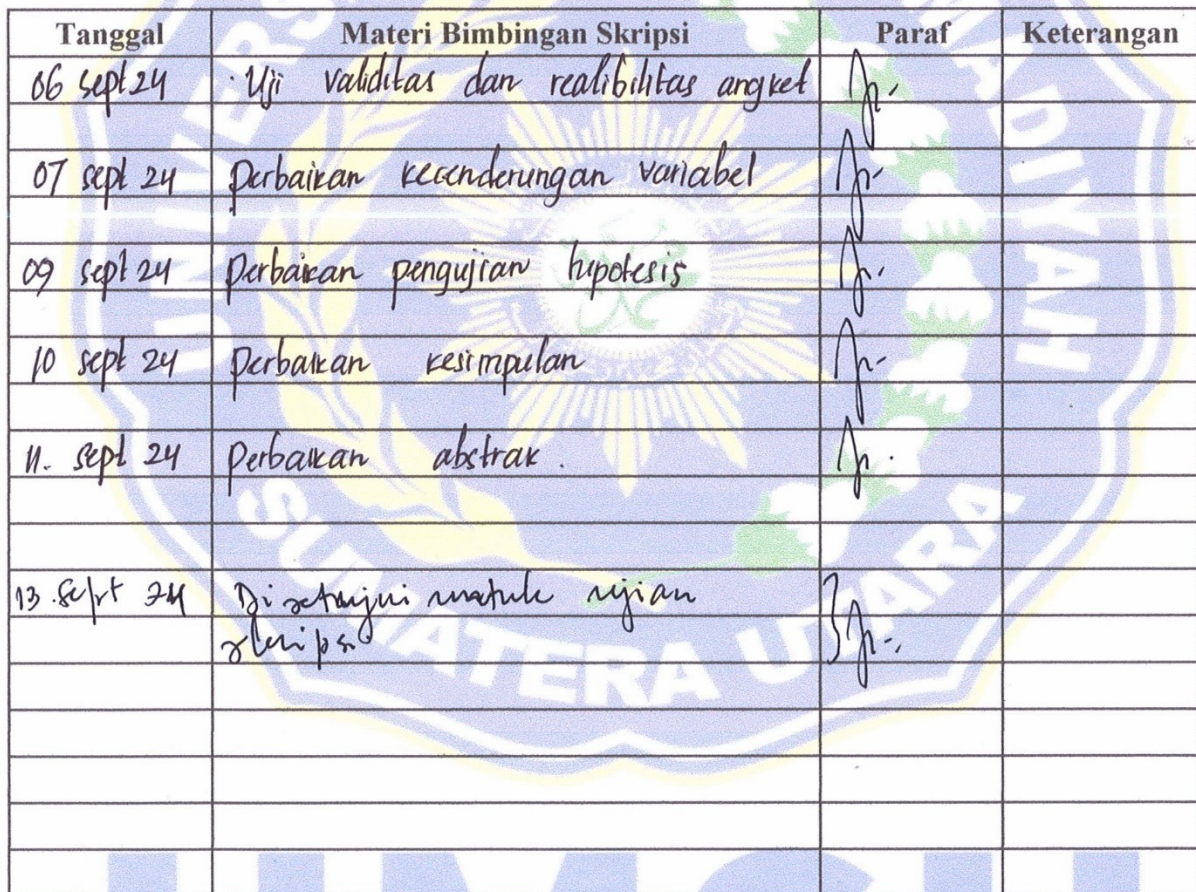 Tanggal Materi Bimbingan Skripsi Paraf Keterangan
06 sept 24 Uji validitas dan realibilitas angket
07 sept 24 Perbaikan kecenderungan variabel
09 sept 24 Perbaikan pengujian hipotesis
10 sept 24 Perbaikan kesimpulan
11. sept 24 Perbaikan abstrak.
13. Sept 24 Disetujui untuk ujian
skripsi
UNIVERS
MADIYAH
SUMATERA UTARA